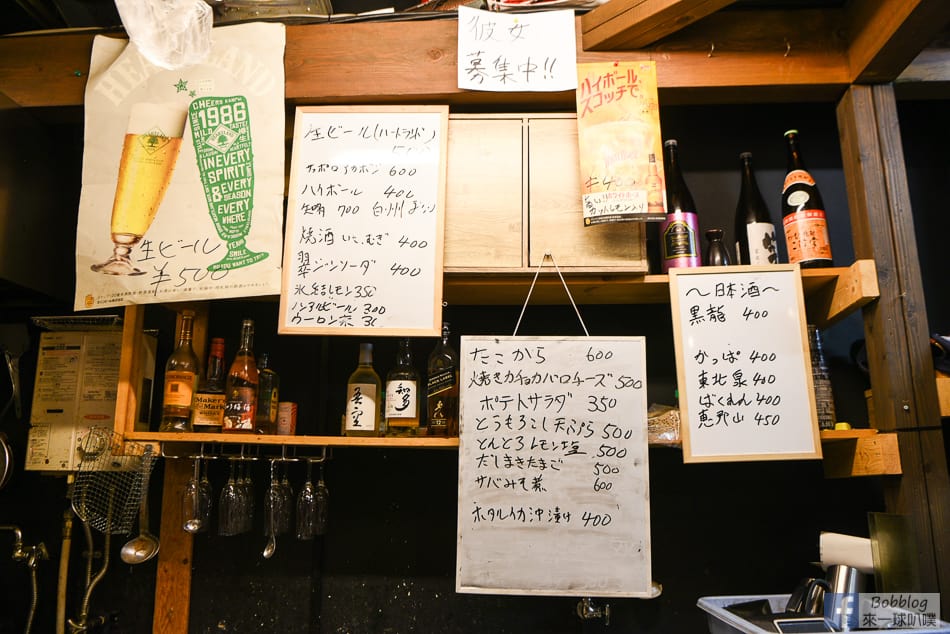 彼女
募集中!!
CHEERS KANPAI
1986
IN EVERY
SPIRIT
& EVERY
SEASON
EVERY
WHERE
YEAH!
SMILE
DO YOU WANT TO
生ビール
¥500
生ビール(ハートランド)
サッポロ赤ボシ 600
ハイボール 400
知多 700 白州
焼酎 いも、むぎ 400
翠ジンソーダ 400
氷結レモン 350
ノンアルビール 300
ウーロン茶
ハイボール、
スコッチで。
カットレモン入り
〜日本酒〜
黒龍 400
かっぱ 400
東北泉 400
ばくれん 400
恵那山 450
たこから 600
焼きカチョカバロチーズ 500
ポテトサラダ 350
とうもろこし天ぷら 500
とんとろレモン塩 500
だしまきたまご 500
サバみそ煮 600
ホタルイカ沖漬け 400
Maker's
Mark
知多
Bobblog
來一球叭噗